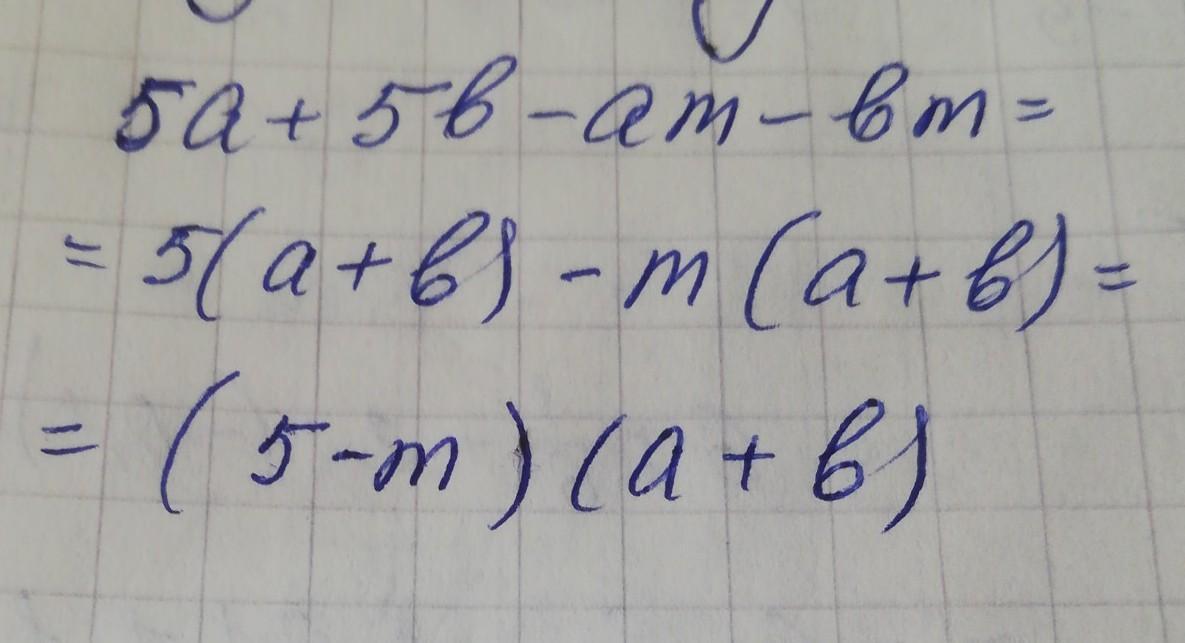 5a + 5b - am - bm =
= 5(a + b) - m(a + b) =
= (5 - m)(a + b)